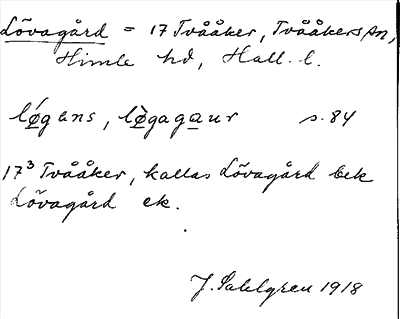 Lövagård = 17 Tvååker, Tvååkers sn,
Himle hd, Hall. l.
lǿgens, lø̀gagaur s. 84
17³ Tvååker, kallas Lövagård bek
Lövagård ek.
J. Sahlgren 1918